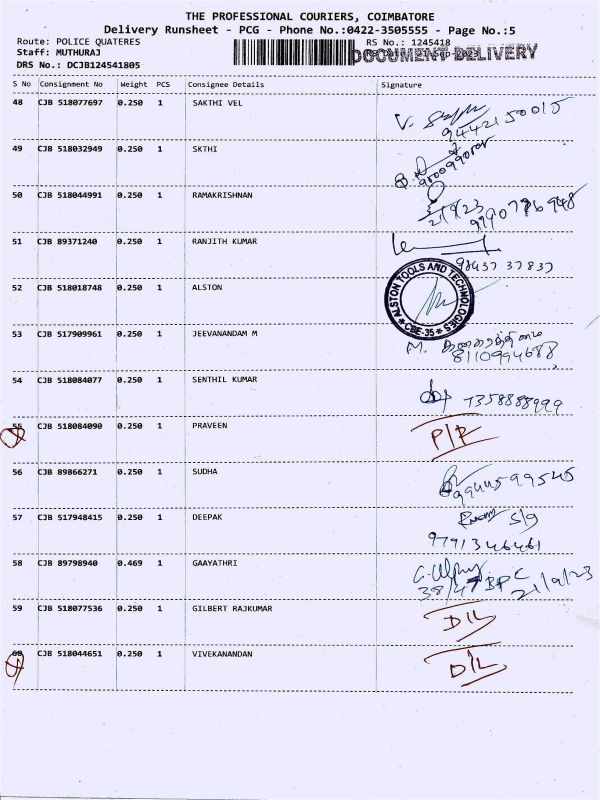 THE PROFESSIONAL COURIERS, COIMBATORE
Delivery Runsheet - PCG - Phone No.:0422-3505555 - Page No.:5
Route: POLICE QUATERES RS No.: 1245418
Staff: MUTHURAJ DOCUMENT DELIVERY
DRS No.: DCJB124541805
S No Consignment No Weight PCS Consignee Details Signature
48 CJB 518077697 0.250 1 SAKTHI VEL
9442150015
49 CJB 518032949 0.250 1 SKTHI
50 CJB 518044991 0.250 1 RAMAKRISHNAN
21/9/23
51 CJB 89371240 0.250 1 RANJITH KUMAR
98437 37837
52 CJB 518018748 0.250 1 ALSTON
ALSTON TOOLS AND TECHNOLOGIES
* CBE-35 *
53 CJB 517909961 0.250 1 JEEVANANDAM M
8110994688
54 CJB 518084077 0.250 1 SENTHIL KUMAR
7358888999
55 CJB 518084090 0.250 1 PRAVEEN
P/R
56 CJB 89866271 0.250 1 SUDHA
9944599545
57 CJB 517948415 0.250 1 DEEPAK
9791346461
58 CJB 89798940 0.469 1 GAAYATHRI
38/47 BPC 21/9/23
59 CJB 518077536 0.250 1 GILBERT RAJKUMAR
D/L
60 CJB 518044651 0.250 1 VIVEKANANDAN
D/L